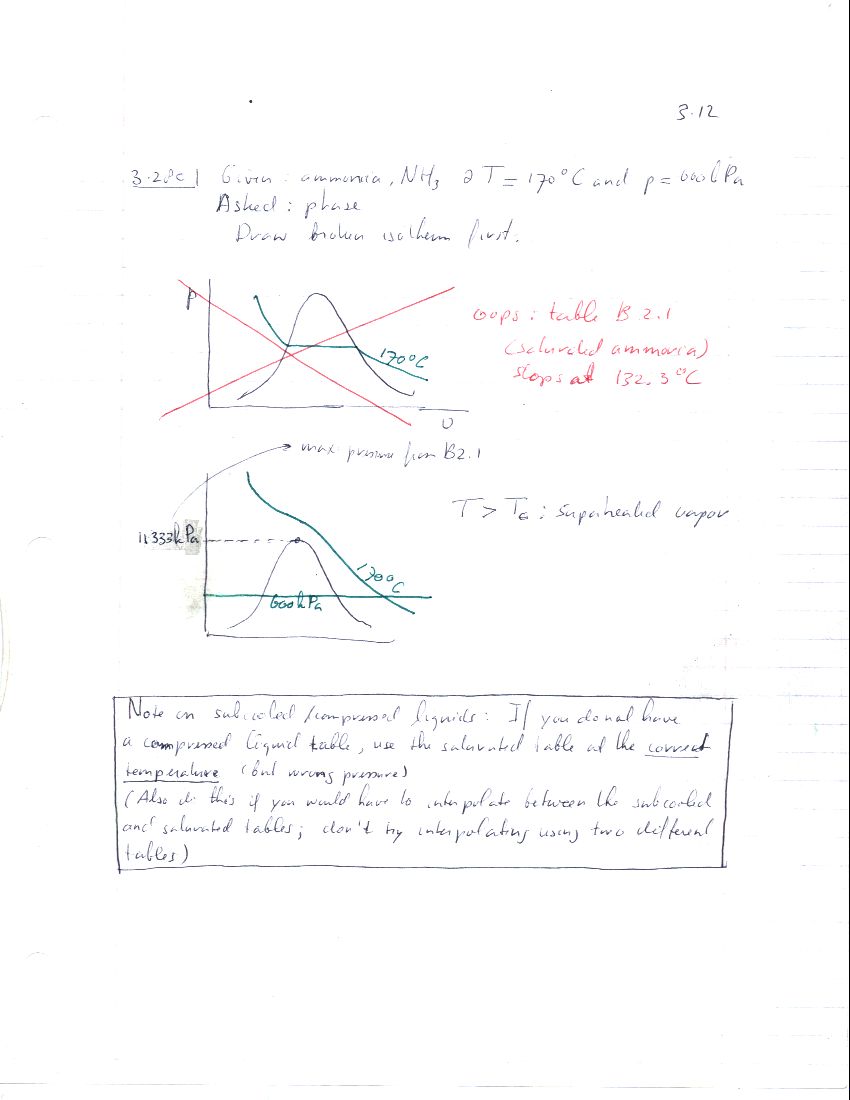 3.12
3.28c Given: ammonia, NH3 @ T = 170°C and p = 600 kPa
Asked: phase
Draw broken isotherm first.
P
170°C
υ
oops: table B 2.1
(saturated ammonia)
stops at 132.3 °C
max pressure from B2.1
11333kPa
170°C
600kPa
T > Tc : superheated vapor
Note on subcooled/compressed liquids: If you do not have
a compressed liquid table, use the saturated table at the correct
temperature (but wrong pressure)
(Also do this if you would have to interpolate between the subcooled
and saturated tables; don't try interpolating using two different
tables)